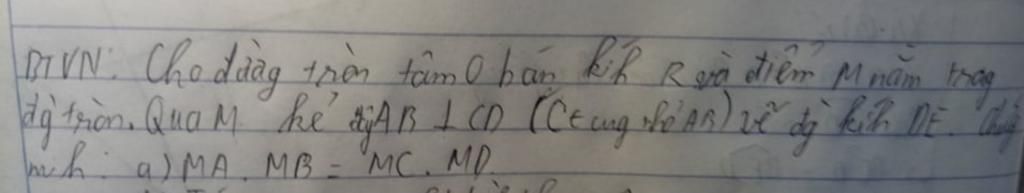 BTVN: Cho đường tròn tâm O bán kíh R và điểm M nằm trog
đg tròn. Qua M kẻ dây AB ⊥ CD (C ∈ cung nhỏ AB) vẽ đg kíh DE. Chứg
mih: a) MA. MB = MC. MD.